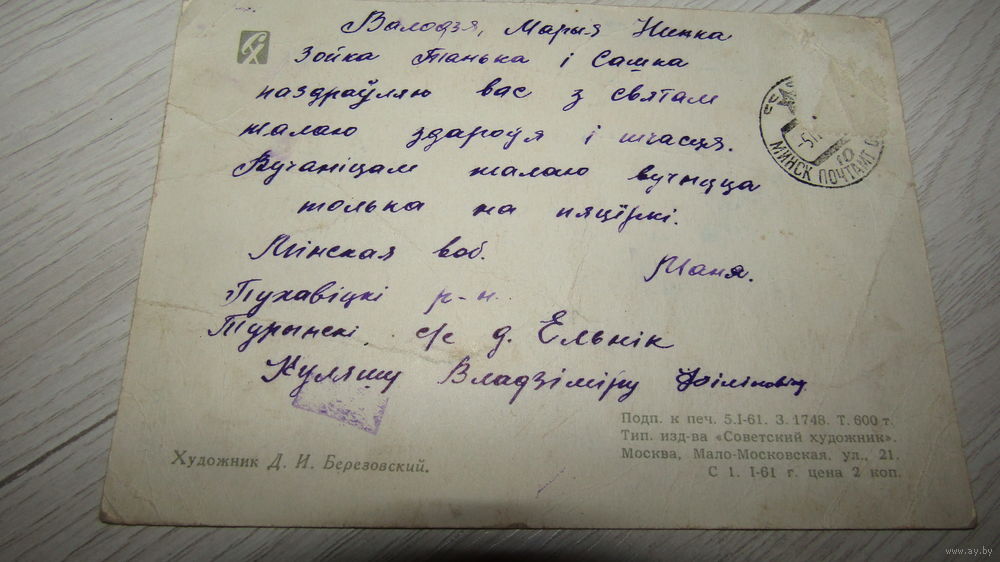 Валодзя, Марыя Нинка
Зойка Танька і Сашка
паздраўляю вас з святам
жалаю здароўя і шчасця.
Вучаніцам жалаю вучыцца
толька на пяцёркі.
Маня.
Мінская воб.
Пухавіцкі р-н.
Турынскі с/с д. Ельнік
Куляшу Владзіміру Філіповічу
МИНСК ПОЧТАМТ
Художник Д. И. Березовский.
Подп. к печ. 5.I-61. З. 1748. Т. 600 т.
Тип. изд-ва «Советский художник».
Москва, Мало-Московская, ул., 21.
С 1. I-61 г. цена 2 коп.
www.ay.by